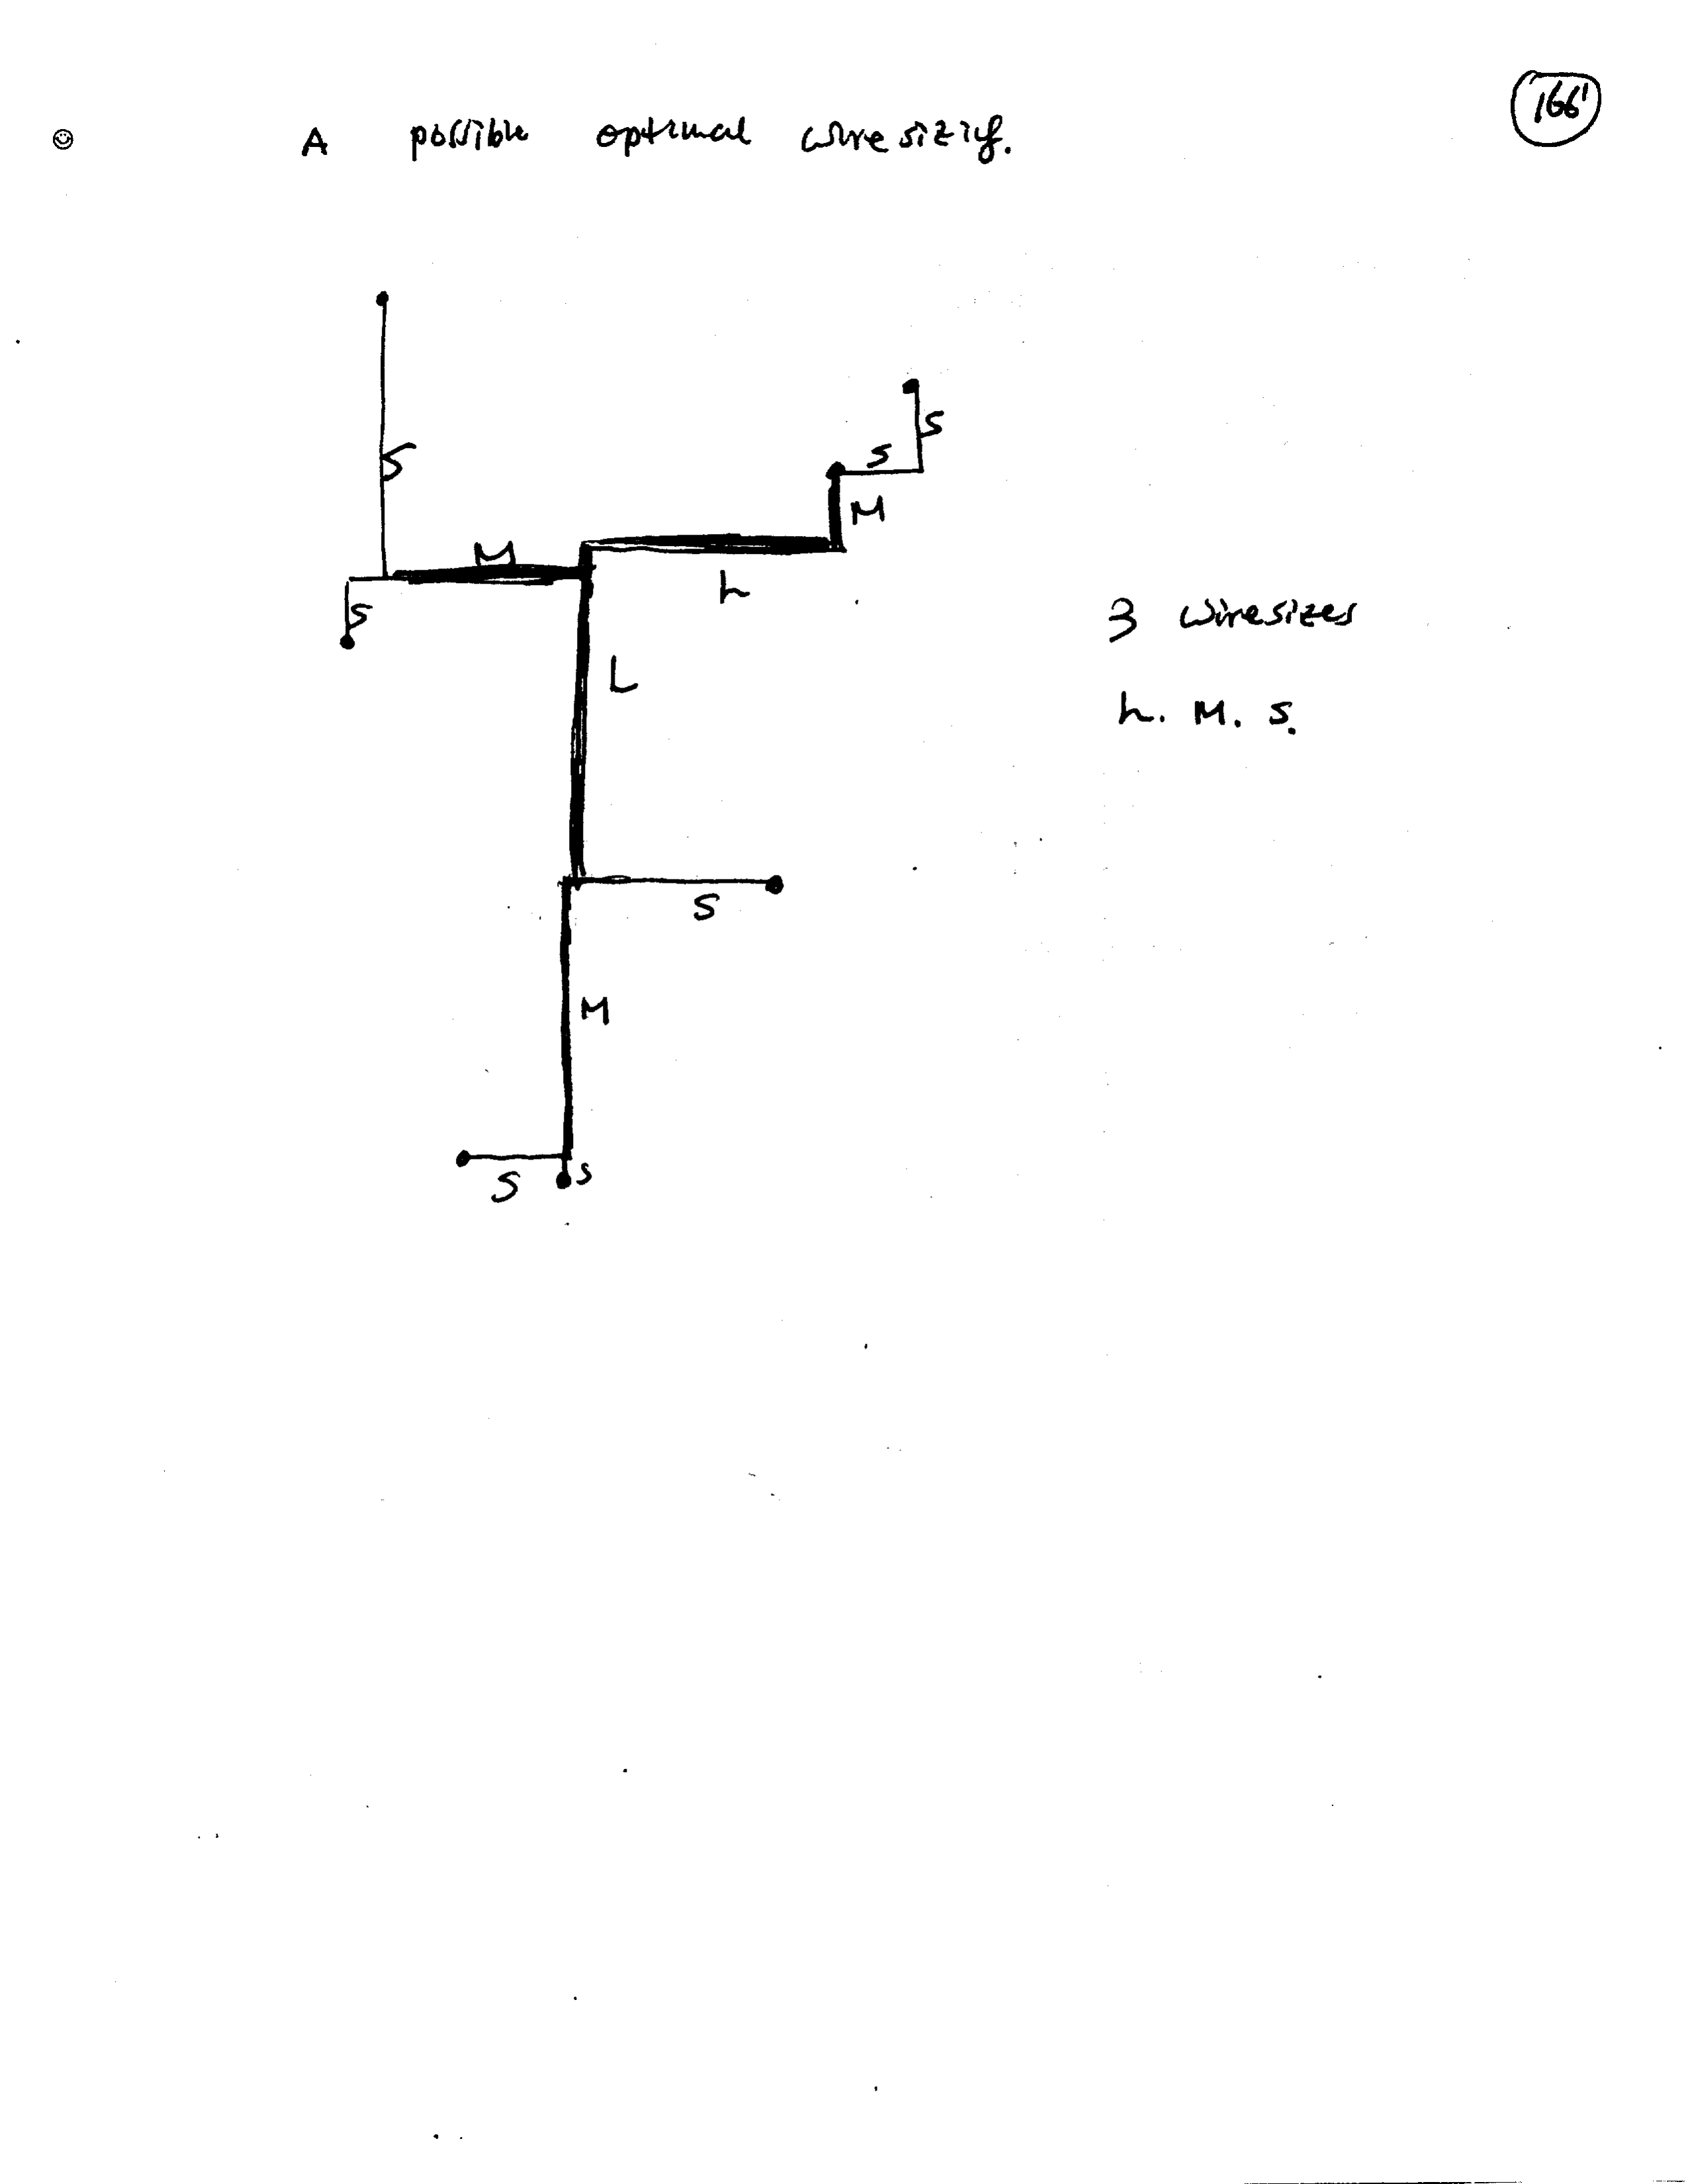 166'
A possible optimal wiresizing.
S
S
S
M
M
L
S
L
3 wiresizes
L. M. S.
S
M
S
S